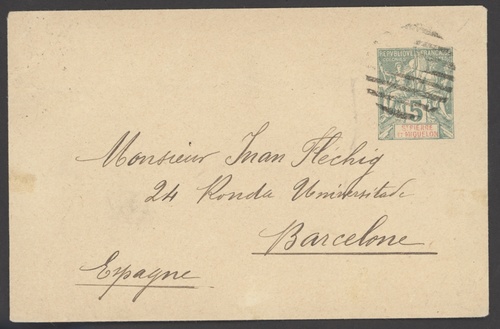 REPUBLIQUE FRANCAISE
5
ST PIERRE
ET MIQUELON
Monsieur Juan Fléchig
24 Ronda Universitade
Barcelone
Espagne